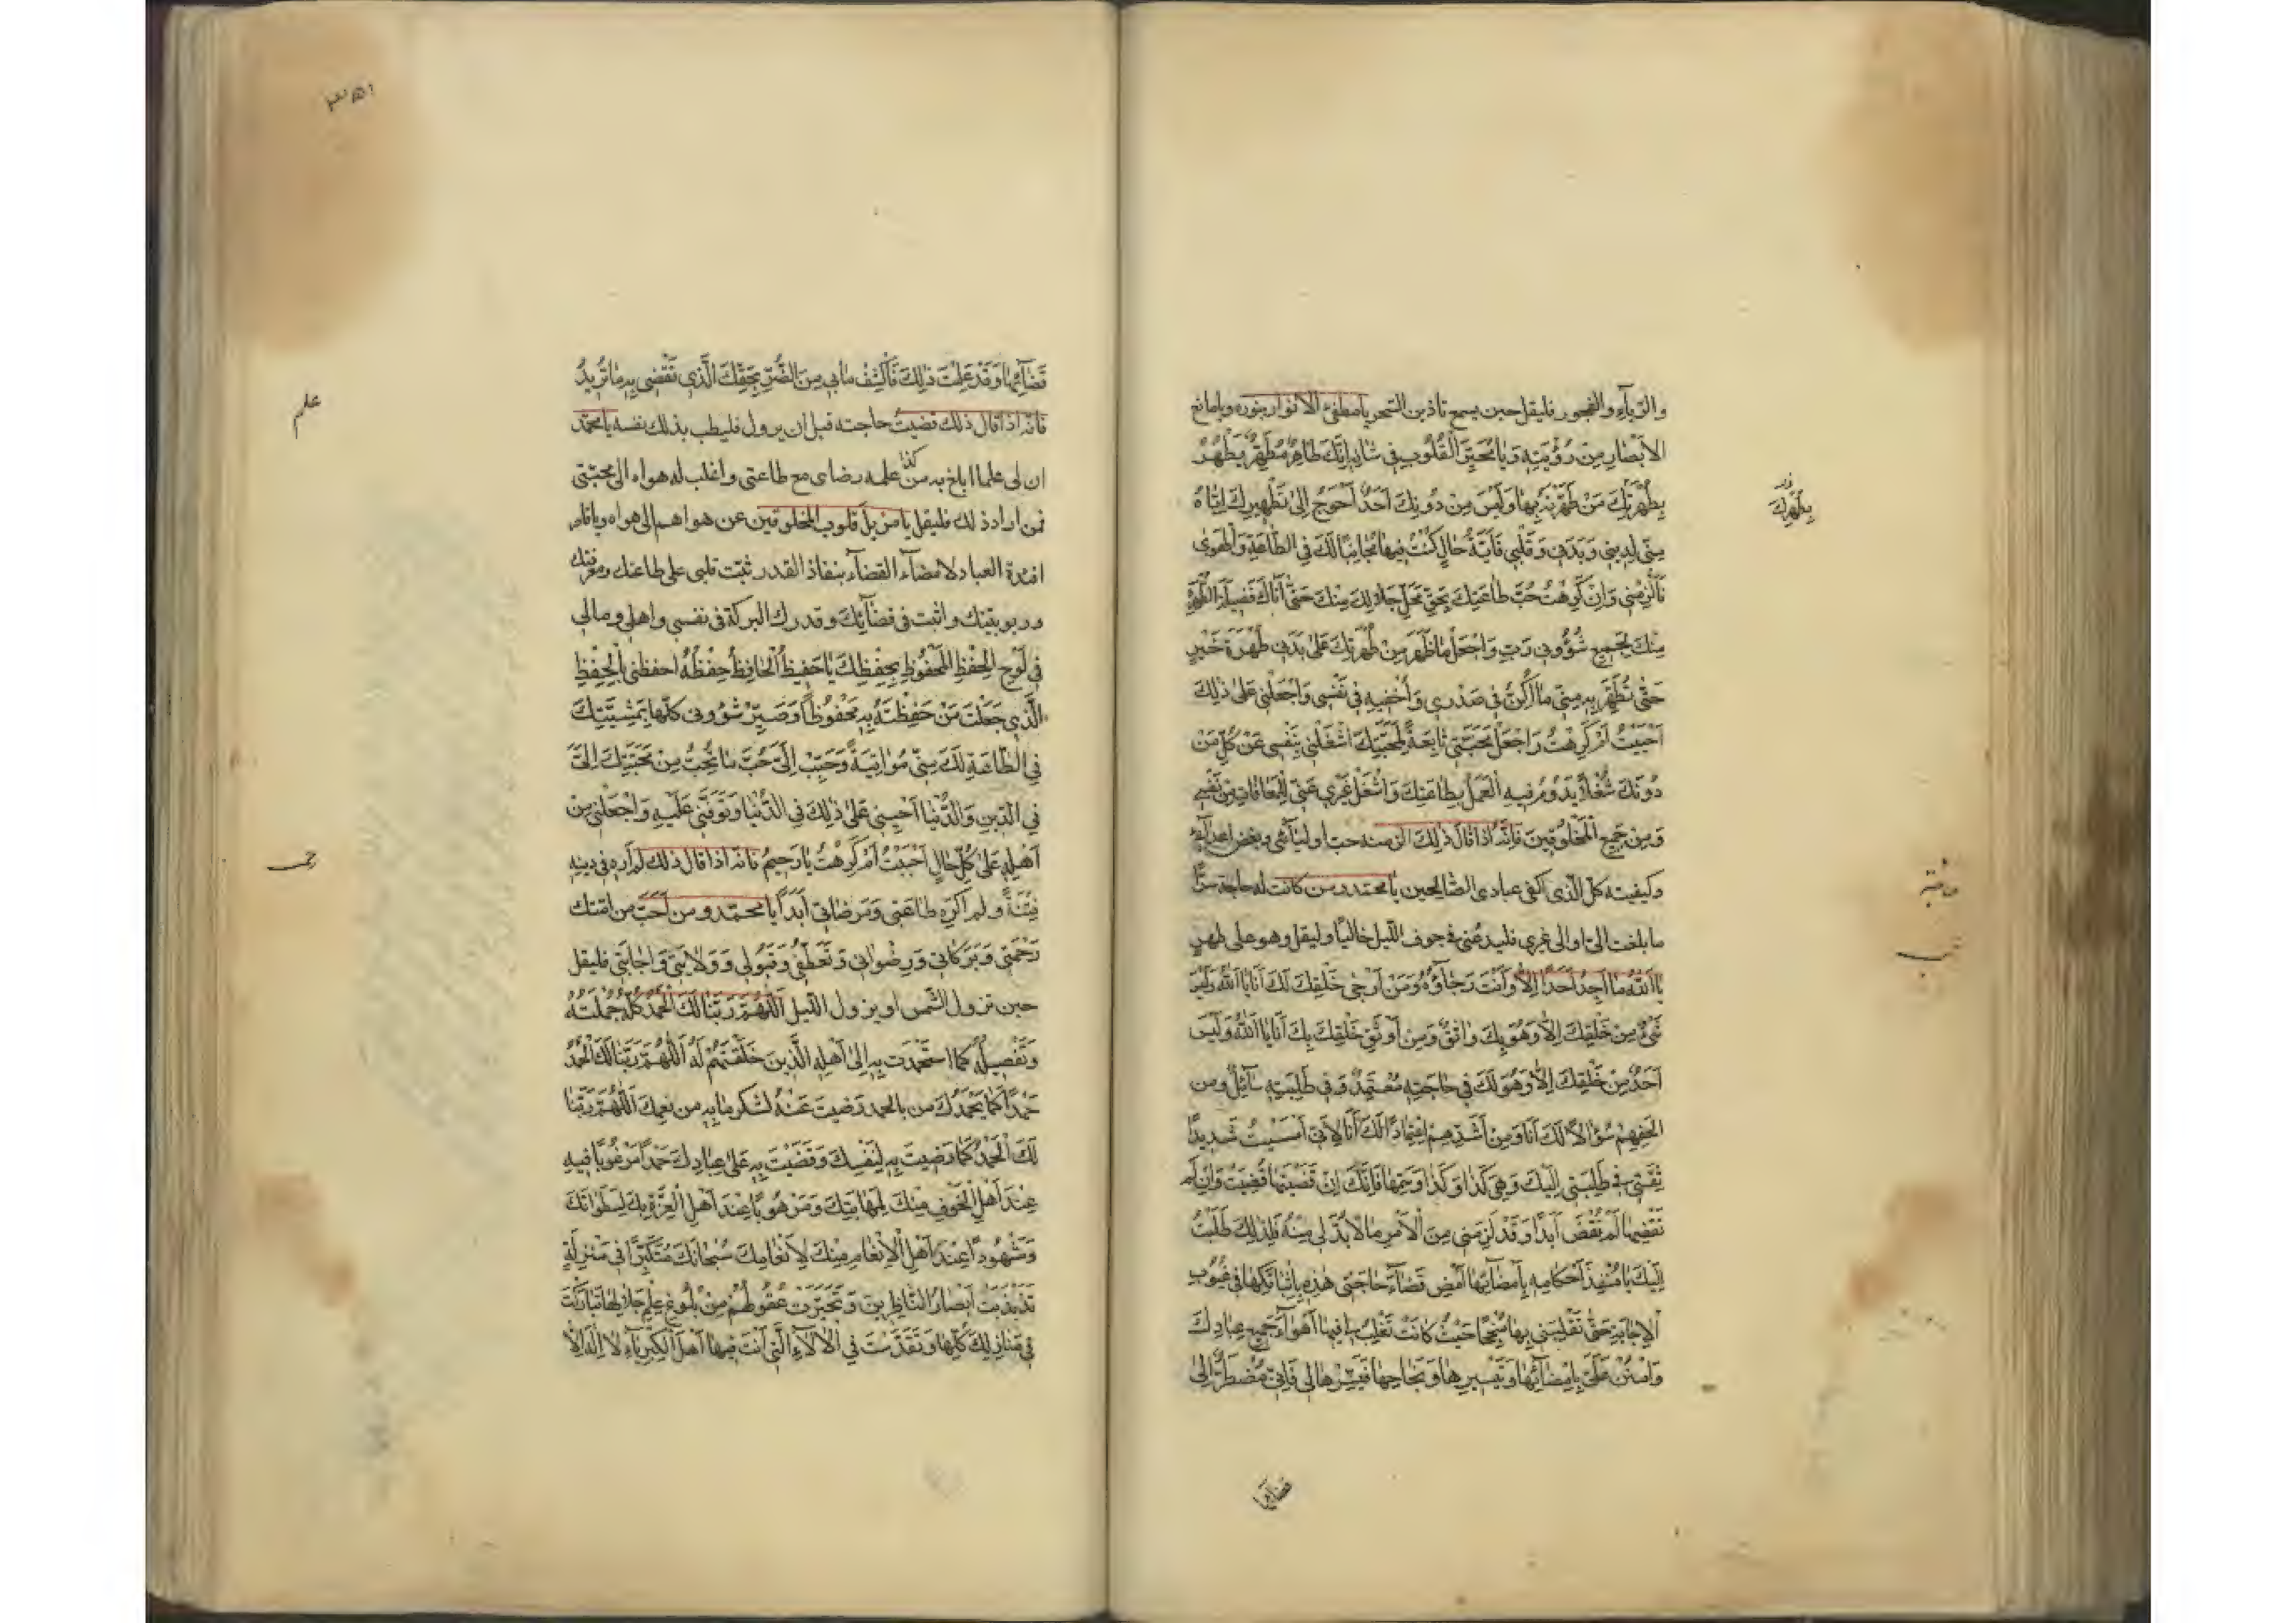 والرياء والفجور فليقل حين يسمع تاذين السحر يا مطفئ الانوار بنوره ويا مانع
الاَبْصَارِ مِنْ رُؤْيَتِهِ وَيَا مُحَيِّرَ الْقُلُوبِ فِي شَانِهِ اِنَّكَ طَاهِرٌ مُطَهِّرٌ يَطْهُرُ
بِطُهْرَتِكَ مَنْ طَهَّرْتَهُ بِهَا وَلَيْسَ مِنْ دُونِكَ اَحَدٌ اَحْوَجُ اِلىٰ تَطْهِيرِكَ اِيَّاهُ
مِنّى لِدينى وَبَدَنى وَقَلْبى فَاَيَّةُ حَالٍ كُنْتُ فِيهَا مُجَانِبًا لَكَ فِي الطَّاعَةِ وَالْهَوىٰ
فَاَلْزِمْنى وَاِنْ كَرِهْتُ حُبَّ طَاعَتِكَ بِحَقِّ مَحَلِّ جَلَالِكَ مِنْكَ حَتّىٰ اَنَالَ فَضِيلَةَ الطُّهْرَةِ
مِنْكَ لِجَمِيعِ شُؤُونى رَبِّ وَاجْعَلْ مَا ظَهَرَ مِنْ طُهْرَتِكَ عَلىٰ بَدَنى طُهْرَةَ خَيْرٍ
حَتّىٰ تُطَهِّرَ بِهِ مِنّى مَا اُكِنُّ فِي صَدْرى وَاُخْفِيهِ فِي نَفْسى وَاجْعَلْنى عَلىٰ ذٰلِكَ
اَحْبَبْتُ اَمْ كَرِهْتُ وَاجْعَلْ مَحَبَّتى تَابِعَةً لِمَحَبَّتِكَ اشْغَلْنى بِنَفْسى عَنْ كُلِّ مَنْ
دُونَكَ شُغْلًا يَدُومُ فِيهِ الْعَمَلُ بِطَاعَتِكَ وَاشْغَلْ غَيْرى عَنّى لِلْمُعَافَاةِ مِنْ نَفْسى
وَمِنْ جَمِيعِ الْمَخْلُوقِينَ فَاِنَّهُ اِذَا قَالَ ذٰلِكَ الزمته حب اوليائى وبغض اعدائى
وكفيته كل الذى اكفى عبادى الصالحين يا محمد ومن كانت له حاجة سرًّا
ما بلغت الىّ او الى غيرى فليدعنى فى جوف الليل خاليًا وليقل وهو على طهر
يَا اَللّٰهُ مَا اَجِدُ اَحَدًا اِلَّا وَاَنْتَ رَجَاؤُهُ وَمِنْ اَرْجىٰ خَلْقِكَ لَكَ اَنَا يَا اَللّٰهُ وَلَيْسَ
شَىْءٌ مِنْ خَلْقِكَ اِلَّا وَهُوَ بِكَ وَاثِقٌ وَمِنْ اَوْثَقِ خَلْقِكَ بِكَ اَنَا يَا اَللّٰهُ وَلَيْسَ
اَحَدٌ مِنْ خَلْقِكَ اِلَّا وَهُوَ لَكَ فِي حَاجَتِهِ مُعْتَمِدٌ وَفى طَلِبَتِهِ سَائِلٌ ومن
اَلَحِّهِمْ سُؤَالًا لَكَ اَنَا وَمِنْ اَشَدِّهِمْ اِعْتِمَادًا لَكَ اَنَا لِاَنّى اَمْسَيْتُ شَدِيدًا
ثِقَتى فِي طَلِبَتى اِلَيْكَ وَهِىَ كَذَا وَكَذَا وَسَمِّهَا فَاِنَّكَ اِنْ قَضَيْتَهَا قُضِيَتْ وَاِنْ لَمْ
تَقْضِهَا لَمْ تُقْضَ اَبَدًا وَقَدْ لَزِمَنى مِنَ الْاَمْرِ مَا لَا بُدَّ لى مِنْهُ فَلِذٰلِكَ طَلَبْتُ
اِلَيْكَ يَا مُنْفِذَ اَحْكَامِهِ بِاِمْضَائِهَا اَمْضِ قَضَاءَ حَاجَتى هٰذِهِ بِاِثْبَاتِكَهَا فِي غُيُوبِ
الْاِجَابَةِ حَتّىٰ تَقْلِبَنى بِهَا مُنْجِحًا حَيْثُ كَانَتْ تَغْلِبُ لى فِيهَا اَهْوَاءَ جَمِيعِ عِبَادِكَ
وَامْنُنْ عَلَىَّ بِاِمْضَائِهَا وَتَيْسِيرِهَا وَنَجَاحِهَا فَيَسِّرْهَا لى فَاِنّى مُضْطَرٌّ اِلىٰ
قضائها
بِطُهْرِكَ
قَضَائِهَا وَقَدْ عَلِمْتَ ذٰلِكَ فَاكْشِفْ مَا بى مِنَ الضُّرِّ بِحَقِّكَ الَّذى تَقْضى بِهِ مَا تُرِيدُ
فانه اذا قال ذلك قضيت حاجته قبل ان يزول فليطب بذلك نفسه يا محمد
ان لى علما ابلغ به من علمه رضاى مع طاعتى واغلب له هواه الى محبتى
كذا
فمن اراد ذلك فليقل يا مزيل قلوب المخلوقين عن هواهم الى هواه ويا قاصر
افئدة العباد لامضاء القضاء بنفاذ القدر ثبت قلبى على طاعتك ومعرفتك
وربوبيتك واثبت فى قضائك وقدرك البركة فى نفسى واهلى ومالى
فى لَوْحِ الْحِفْظِ الْمَحْفُوظِ بِحِفْظِكَ يَا حَفِيظُ الْحَافِظُ حِفْظُهُ احفظنى بِالْحِفْظِ
الَّذى جَعَلْتَ مَنْ حَفِظْتَهُ بِهِ مَحْفُوظًا وَصَيِّرْ شُؤُونى كُلَّهَا بِمَشِيَّتِكَ
فِي الطَّاعَةِ لَكَ مِنّى مُوَاتِيَةً وَحَبِّبْ اِلَىَّ حُبَّ مَا تُحِبُّ مِنْ مَحَبَّتِكَ اِلَىَّ
فِي الدّينِ وَالدُّنْيَا اَحْيِنى عَلىٰ ذٰلِكَ فِي الدُّنْيَا وَتَوَفَّنى عَلَيْهِ وَاجْعَلْنى مِنْ
اَهْلِهِ عَلىٰ كُلِّ حَالٍ اَحْبَبْتُ اَمْ كَرِهْتُ يَا رَحِيمُ فانه اذا قال ذلك لم اره فى دينه
فِتْنَةً ولم اكره طاعَتى وَمَرْضَاتى اَبَدًا يا محمد ومن اَحَبَّ من امتك
رَحْمَتى وَبَرَكَاتى وَرِضْوَانى وَتَعَطُّفى وَقَبُولى وَوَلَايَتى وَاِجَابَتى فليقل
حين تزول الشمس او يزول الليل اَللّٰهُمَّ رَبَّنَا لَكَ الْحَمْدُ كُلُّهُ جُمْلَتُهُ
وَتَفْصِيلُهُ كَمَا اسْتَحْمَدْتَ بِهِ اِلىٰ اَهْلِهِ الَّذِينَ خَلَقْتَهُمْ لَهُ اَللّٰهُمَّ رَبَّنَا لَكَ الْحَمْدُ
حَمْدًا كَمَا يَحْمَدُكَ من بالحمد رَضيتَ عَنْهُ لشكر مابه من نِعَمِكَ اَللّٰهُمَّ رَبَّنَا
لَكَ الْحَمْدُ كَمَا رَضِيتَ بِهِ لِنَفْسِكَ وَقَضَيْتَ بِهِ عَلىٰ عِبَادِكَ حَمْدًا مَرْغُوبًا فِيهِ
عِنْدَ اَهْلِ الْخَوْفِ مِنْكَ لِمَهَابَتِكَ وَمَرْهُوبًا عِنْدَ اَهْلِ الْعِزَّةِ بِكَ لِسَطَوَاتِكَ
وَمَشْهُودًا عِنْدَ اَهْلِ الْاِنْعَامِ مِنْكَ لِاِنْعَامِكَ سُبْحَانَكَ مُتَكَبِّرًا فى مَنْزِلَةٍ
تَذَبْذَبَتْ اَبْصَارُ النَّاظِرِينَ وَتَحَيَّرَتْ عُقُولُهُمْ مِنْ بُلُوغِ عِلْمِ جَلَالِهَا تَبَارَكْتَ
فى مَنَازِلِكَ كُلِّهَا وَتَقَدَّسْتَ فِي الْاٰلَاءِ الَّتى اَنْتَ فِيهَا اَهْلَ الْكِبْرِيَاءِ لَا اِلٰهَ اِلَّا
علم